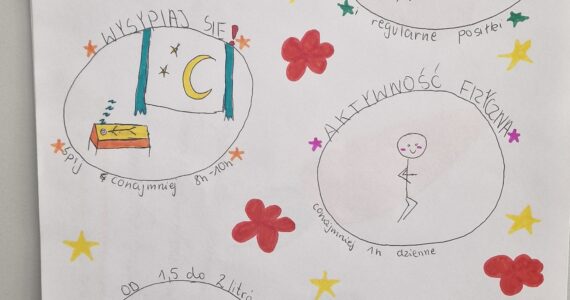 i regularne posiłki
WYSYPIAJ SIĘ!
śpij conajmniej 8h-10h
AKTYWNOŚĆ FIZYCZNA
conajmniej 1h dziennie
OD 1,5 do 2 litrów